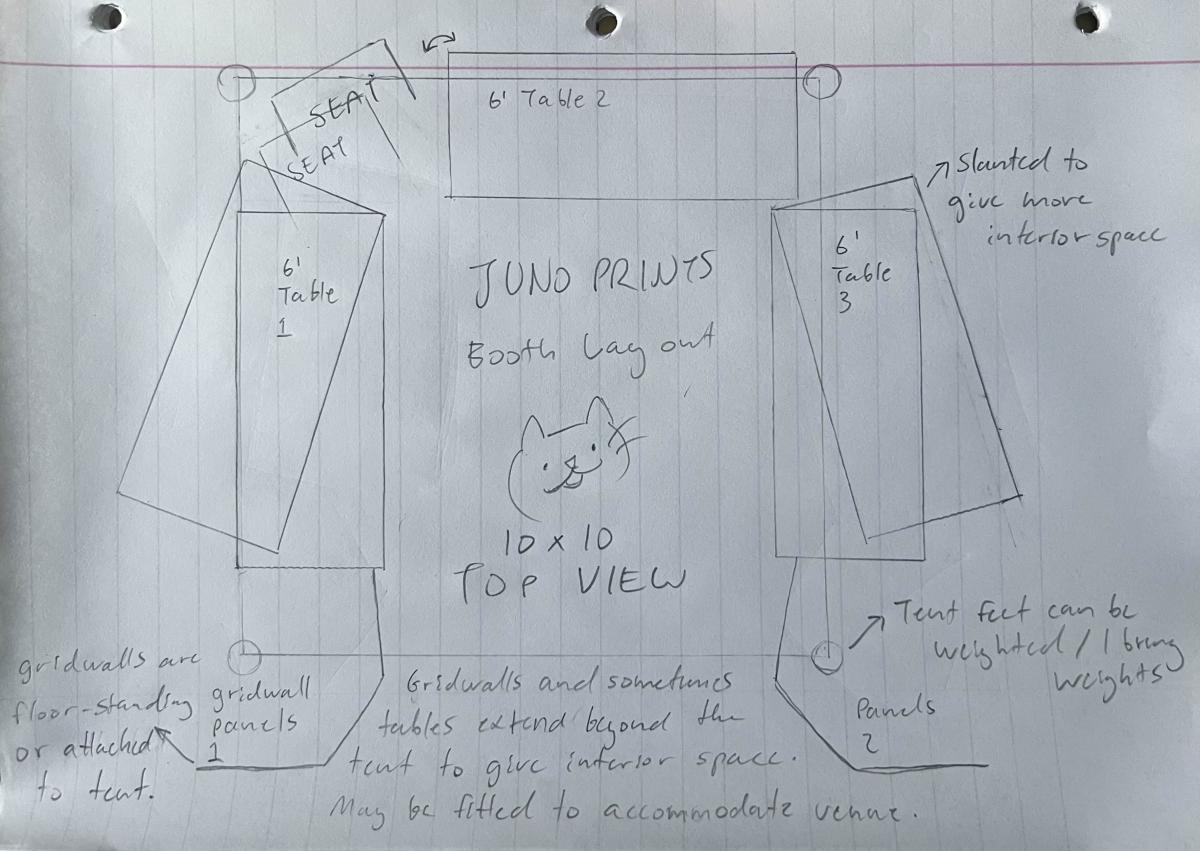 SEAT
SEAT
6' Table 2
Slanted to
give more
interior space
6'
Table
1
6'
Table
3
JUNO PRINTS
Booth Layout
10 x 10
TOP VIEW
Tent feet can be
weighted / I bring
weights
gridwalls are
floor-standing
or attached
to tent.
gridwall
panels
1
Gridwalls and sometimes
tables extend beyond the
tent to give interior space.
May be fitted to accommodate venue.
Panels
2